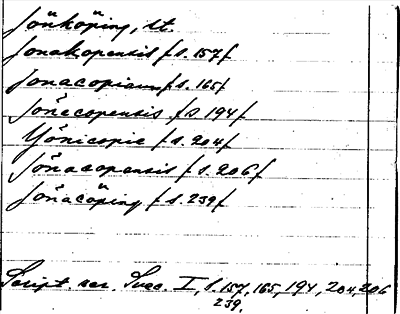 Jönköping, st.
Jonakopensis /s. 157/
Jonacopiam /s. 165/
Jönecopensis /s 194/
Yönicopie /s. 204/
Jönacopensis /s. 206/
Jönacöping /s. 239/
Script. rer. Suec. I, s. 157, 165, 194, 204, 206
239.